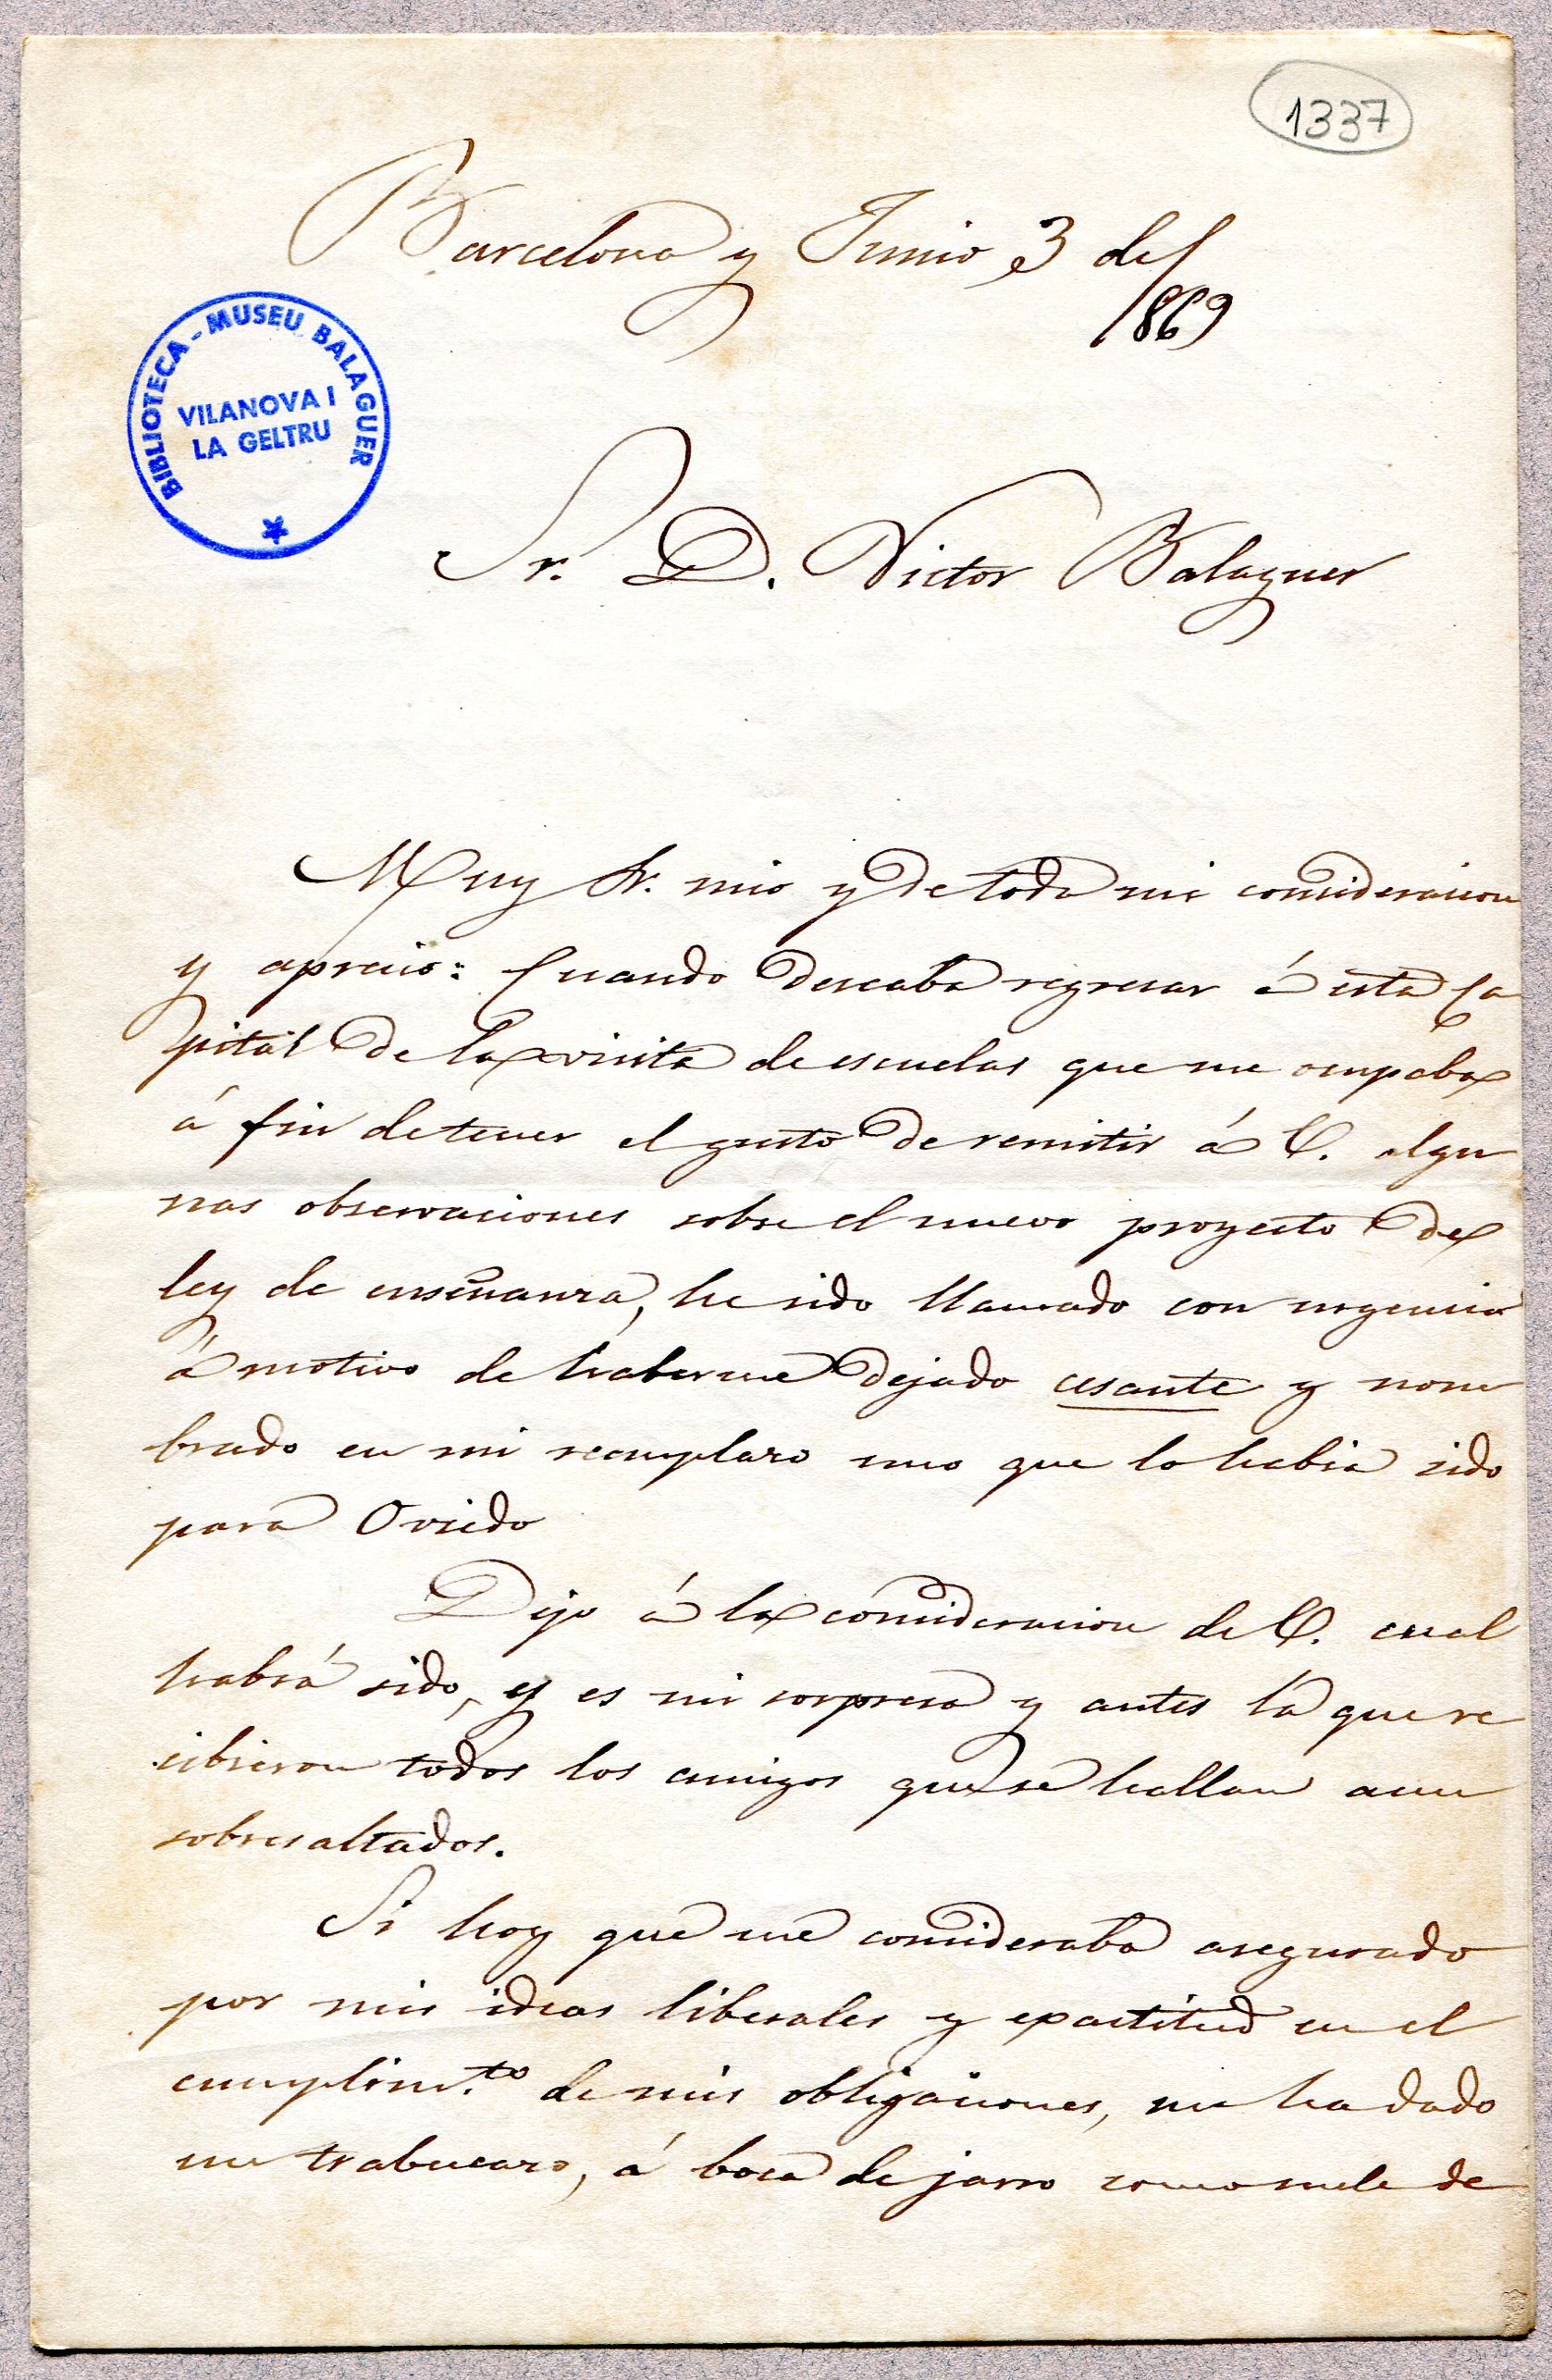 1337
Barcelona y Junio 3 del
1869
BIBLIOTECA - MUSEU BALAGUER
VILANOVA I
LA GELTRU
Sr. D. Victor Balaguer
Muy Sr. mio y de toda mi consideracion
y aprecio: Cuando deseaba regresar á esta Ca
pital de la visita de escuelas que me ocupaba
á fin de tener el gusto de remitir á V. algu
nas observaciones sobre el nuevo proyecto de
ley de enseñanza, he sido llamado con urgencia
á motivo de haberme dejado cesante y nom
brado en mi reemplazo uno que lo habia sido
para Oviedo
Dejo á la consideracion de V. cual
habrá sido, y es mi sorpresa y antes la que re
cibieron todos los amigos que se hallan aun
sobresaltados.
Si hoy que me consideraba asegurado
por mis ideas liberales y exactitud en el
cumplim.to de mis obligaciones, me ha dado
un trabucazo, á boca de jarro como suele de